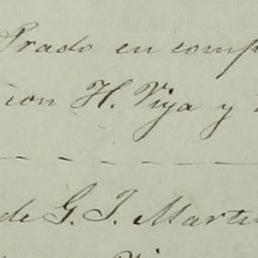 Prado en comp
con H. Viya y
de G. J. Marti